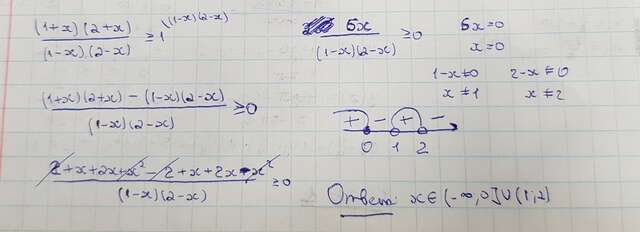 (1+x)(2+x)/(1-x)(2-x) ≥ 1^{(1-x)(2-x)}
(1+x)(2+x) - (1-x)(2-x)/(1-x)(2-x) ≥ 0
2+x+2x+x² - 2+x+2x-x²/(1-x)(2-x) ≥ 0
6x/(1-x)(2-x) ≥ 0
6x=0
x=0
1-x≠0 2-x≠0
x≠1 x≠2
+ - + -
0 1 2
Ответ: x∈(-∞,0]∪(1,2)